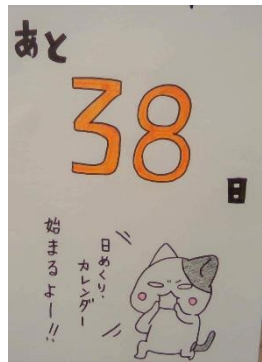 あと
38
日
日めくり・
カレンダー
始まるよー!!